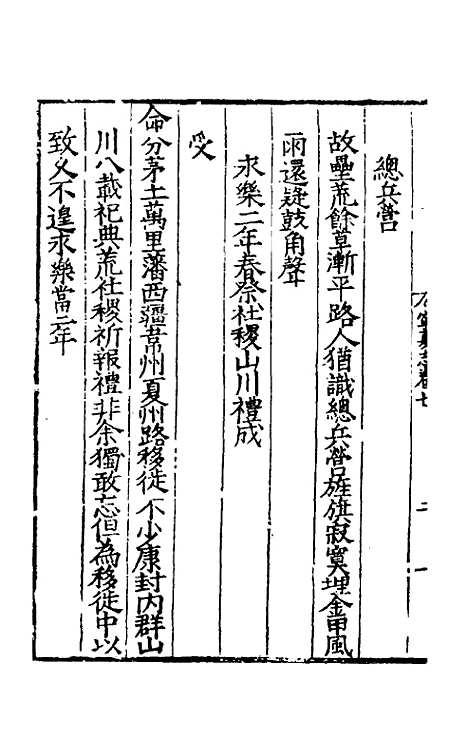 總兵營
故壘荒餘草漸平路人猶識總兵營旌旗寂寞埋金甲風
雨還疑鼓角聲
永樂二年春祭社稷山川禮成
受
命分茅土萬里藩西疆韋州夏州路移徙不少康封内群山
川八載祀典荒社稷祈報禮非余獨敢忘但為移徙中以
致久不遑永樂當二年